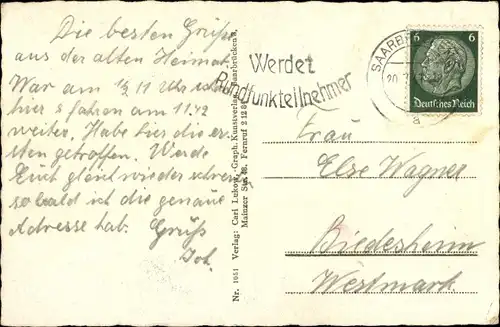 Die besten Grüße
aus der alten Heimat.
War am 1/2 11 Uhr
hier fahren am 11.42
weiter. Habe hier die
ten getroffen. Werde
Euch gleich wieder
so bald ich die genaue
Adresse hab. Grüß
Joh.
Nr. 1651 Verlag: Carl Lukow, Graph. Kunstverlag, Saarbrücken
Mainzer Fernruf
Werdet
Rundfunkteilnehmer
SAARB
20
6 6
Deutsches Reich
Frau
Else Wagner
Biedesheim
Westmark